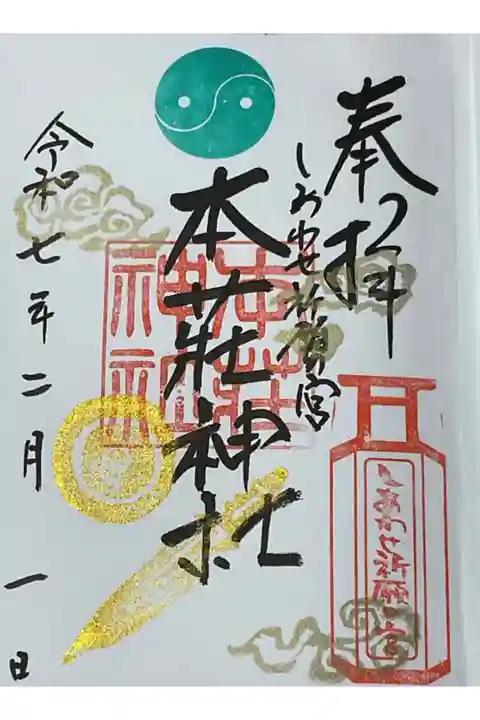 奉拝
しあわせ祈願宮
本荘神社
本荘神社
しあわせ祈願の宮
令和七年二月一日